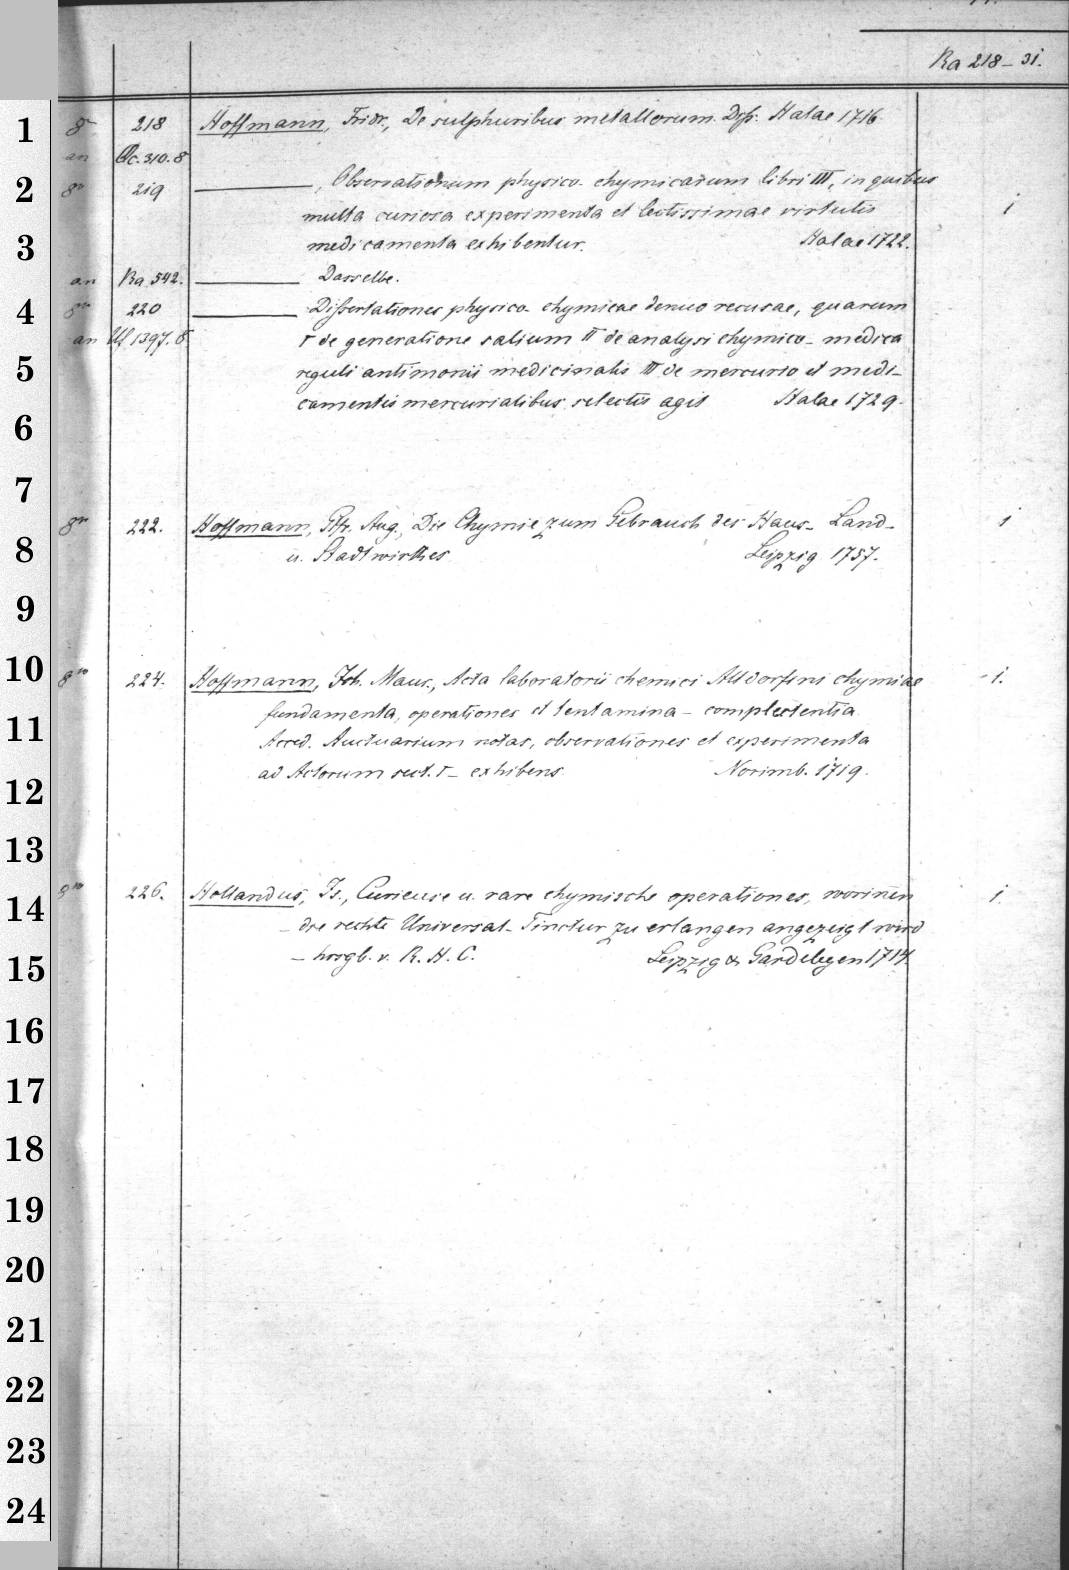 Ra 218-31.
1 8° 218 Hoffmann, Fridr., De sulphuribus metallorum. Diss. Halae 1716.
an Qc. 310. 8
2 8° 219 ———, Observationum physico-chymicarum libri III, in quibus 1
multa curiosa experimenta et lectissimae virtutis
3 medicamenta exhibentur. Halae 1722.
an Ra 542. ——— Dasselbe.
4 8° 220 ——— Dissertationes physico-chymicae denuo recusae, quarum
an Uf 1397. 8 I de generatione salium II de analysi chymico-medica
5 reguli antimonii medicinalis III de mercurio et medi-
camentis mercurialibus selectis agit Halae 1729.
6
7
8° 222. Hoffmann, Gfr. Aug., Die Chymie zum Gebrauch des Haus- Land- 1
8 u. Stadtwirthes Leipzig 1757.
9
10 8° 224. Hoffmann, Joh. Maur., Acta laboratorii chemici Altdorfini chymiae 1.
fundamenta, operationes et tentamina – complectentia
11 Acced. Auctuarium notas, observationes et experimenta
ad Actorum sect. I – exhibens Norimb. 1719.
12
13
14 8° 226. Hollandus, Is., Curieuse u. rare chymische operationes, worinnen 1.
– die rechte Universal-Tinctur zu erlangen angezeigt wird
15 – hrsgb. v. R. H. C. Leipzig & Gardelegen 1714.
16
17
18
19
20
21
22
23
24